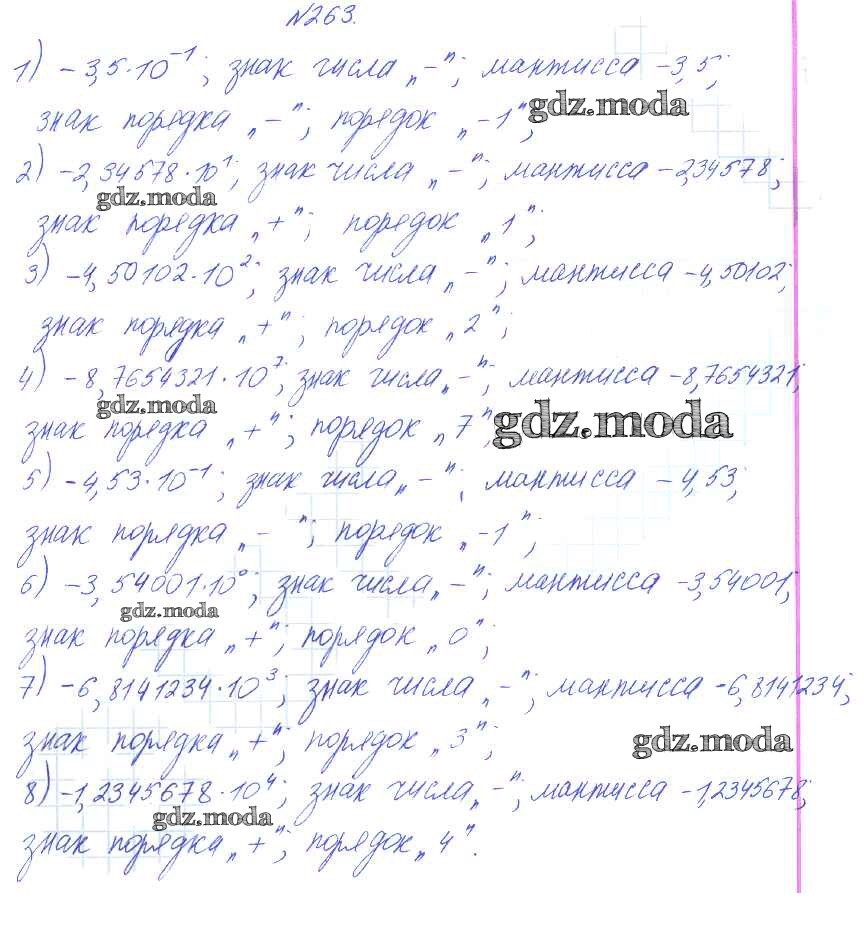 №263.
1) -3,5·10⁻¹; знак числа „-"; мантисса -3,5;
знак порядка „-"; порядок „-1";
gdz.moda
2) -2,34578·10¹; знак числа „-"; мантисса -2,34578;
gdz.moda
знак порядка „+"; порядок „1";
3) -4,50102·10²; знак числа „-"; мантисса -4,50102;
знак порядка „+"; порядок „2";
4) -8,7654321·10⁷; знак числа „-"; мантисса -8,7654321;
gdz.moda
знак порядка „+"; порядок „7";
gdz.moda
5) -4,53·10⁻¹; знак числа „-"; мантисса -4,53;
знак порядка „-"; порядок „-1";
6) -3,54001·10⁰; знак числа „-"; мантисса -3,54001;
gdz.moda
знак порядка „+"; порядок „0";
7) -6,8141234·10³; знак числа „-"; мантисса -6,8141234;
знак порядка „+"; порядок „3";
gdz.moda
8) -1,2345678·10⁴; знак числа „-"; мантисса -1,2345678;
gdz.moda
знак порядка „+"; порядок „4".